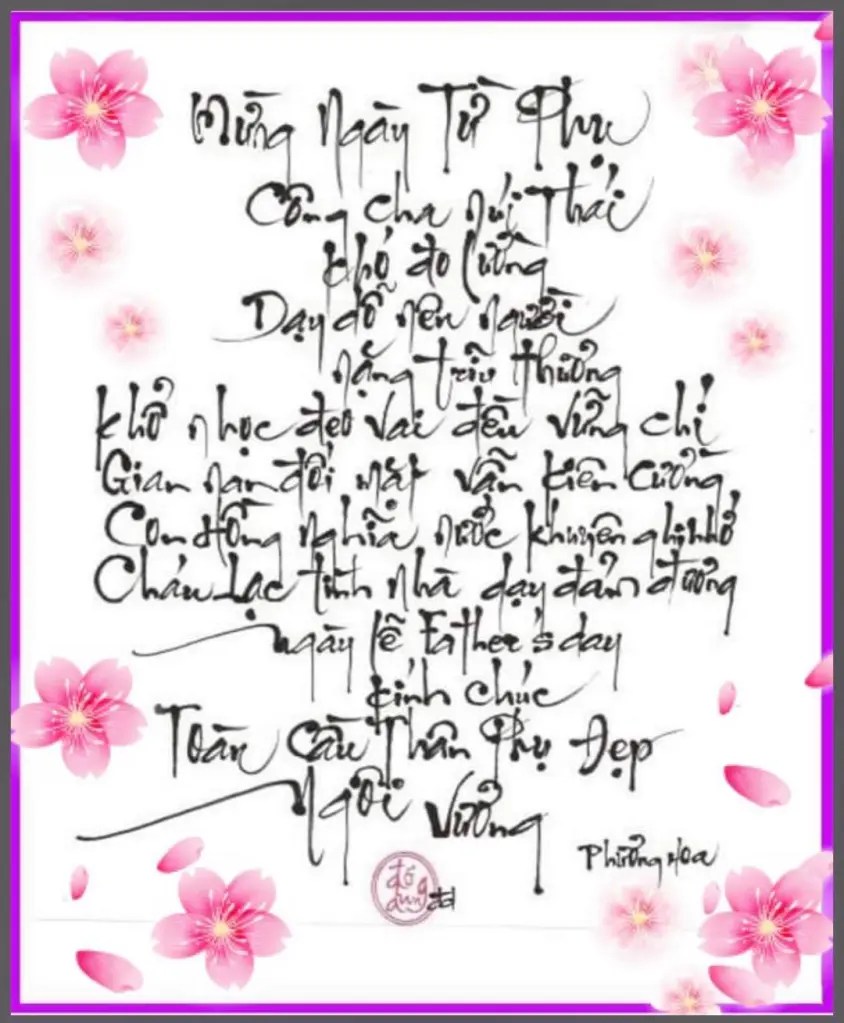 Mừng Ngày Từ Phụ
Công cha núi Thái
khó đo lường
Dạy dỗ nên người
nặng trĩu thương
khổ nhọc đeo vai đều vững chí
Gian nan đổi mặt vẫn kiên cường
Con Hồng nghĩa nước khuyên ghi nhớ
Cháu Lạc tình nhà dạy đảm đương
ngày lễ Father's day
kính chúc
Toàn Cầu Thân Phụ Đẹp
Ngôi Vương
Phương Hoa
đỗ
dung